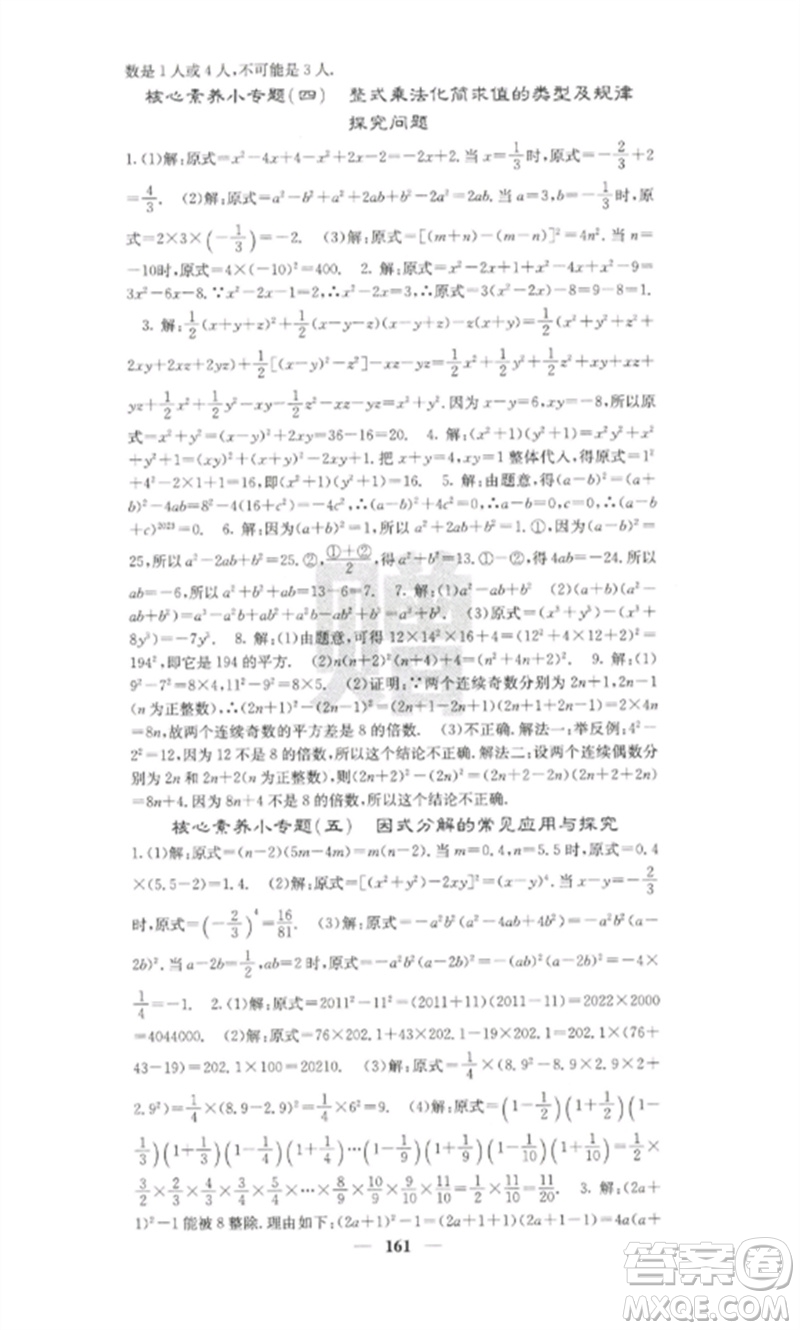 数是1人或4人,不可能是3人.
核心素养小专题(四) 整式乘法化简求值的类型及规律
探究问题
1.(1)解:原式=x²-4x+4-x²+2x-2=-2x+2.当x=1/3时,原式=-2/3+2
=4/3. (2)解:原式=a²-b²+a²+2ab+b²-2a²=2ab.当a=3,b=-1/3时,原
式=2×3×(-1/3)=-2. (3)解:原式=[(m+n)-(m-n)]²=4n².当n=
-10时,原式=4×(-10)²=400. 2.解:原式=x²-2x+1+x²-4x+x²-9=
3x²-6x-8.∵x²-2x-1=2,∴x²-2x=3,∴原式=3(x²-2x)-8=1.
3.解:1/2(x+y+z)²+1/2(x-y-z)(x-y+z)-z(x+y)=1/2(x²+y²+z²+
2xy+2xz+2yz)+1/2[(x-y)²-z²]-xz-yz=1/2x²+1/2y²+1/2z²+xy+xz+
yz+1/2x²+1/2y²-xy-1/2z²-xz-yz=x²+y².因为x-y=6,xy=-8,所以原
式=x²+y²=(x-y)²+2xy=36-16=20. 4.解:(x²+1)(y²+1)=x²y²+x²
+y²+1=(xy)²+(x+y)²-2xy+1.把x+y=4,xy=1整体代人,得原式=1²
+4²-2×1+1=16,即(x²+1)(y²+1)=16. 5.解:由题意,得(a-b)²=(a+
b)²-4ab=8²-4(16+c²)=-4c²≥0,∴(a-b)²=0,c=0,∴a-b=0,∴(a-b
+c)²⁰²³=0. 6.解:因为(a+b)²=1,所以a²+2ab+b²=1.①,因为(a-b)²=
25,所以a²-2ab+b²=25.②,(①+②)/2,得a²+b²=13.①-②,得4ab=-24,所以
ab=-6,所以a²+b²+ab=13-6=7. 7.解:(1)a²-ab+b² (2)(a+b)(a²-
ab+b²)=a³-a²b+ab²+a²b-ab²+b³=a³+b³. (3)原式=(x³+y³)-(x³+
8y³)=-7y³. 8.解:(1)由题意,可得12×14²×16+4=(12²+4×12+2)²=
194²,即它是194的平方. (2)n(n+2)²(n+4)+4=(n²+4n+2)². 9.解:(1)
9²-7²=8×4 11²-9²=8×5. (2)证明:∵两个连续奇数分别为2n+1,2n-1
(n为正整数),∴(2n+1)²-(2n-1)²=(2n+1-2n+1)(2n+1+2n-1)=2×4n
=8n,故两个连续奇数的平方差是8的倍数. (3)不正确.解法一:举反例:4²-
2²=12,因为12不是8的倍数,所以这个结论不正确.解法二:设两个连续偶数分
别为2n和2n+2(n为正整数),则(2n+2)²-(2n)²=(2n+2-2n)(2n+2+2n)
=8n+4.因为8n+4不是8的倍数,所以这个结论不正确.
核心素养小专题(五) 因式分解的常见应用与探究
1.(1)解:原式=(n-2)(5m-4m)=m(n-2).当m=0.4,n=5.5时,原式=0.4
×(5.5-2)=1.4. (2)解:原式=[(x²+y²)-2xy]²=(x-y)⁴.当x-y=-2/3
时,原式=(-2/3)⁴=16/81. (3)解:原式=-a²b²(a²-4ab+4b²)=-a²b²(a-
2b)².当a-2b=1/2,ab=2时,原式=-a²b²(a-2b)²=-(ab)²(a-2b)²=-4×
1/4=-1. 2.(1)解:原式=2011²-11²=(2011+11)(2011-11)=2022×2000
=4044000. (2)解:原式=76×202.1+43×202.1-19×202.1=202.1×(76+
43-19)=202.1×100=20210. (3)解:原式=1/4×(8.9²-8.9×2.9×2+
2.9²)=1/4×(8.9-2.9)²=1/4×6²=9. (4)解:原式=(1-1/2)(1+1/2)(1-
1/3)(1+1/3)(1-1/4)(1+1/4)…(1-1/9)(1+1/9)(1-1/10)(1+1/10)=1/2×
3/2×2/3×4/3×3/4×5/4×…×8/9×10/9×9/10×11/10=1/2×11/10=11/20. 3.解:(2a+
1)²-1能被8整除.理由如下:(2a+1)²-1=(2a+1+1)(2a+1-1)=4a(a+
161
赠
答案卷
MXQE.COM